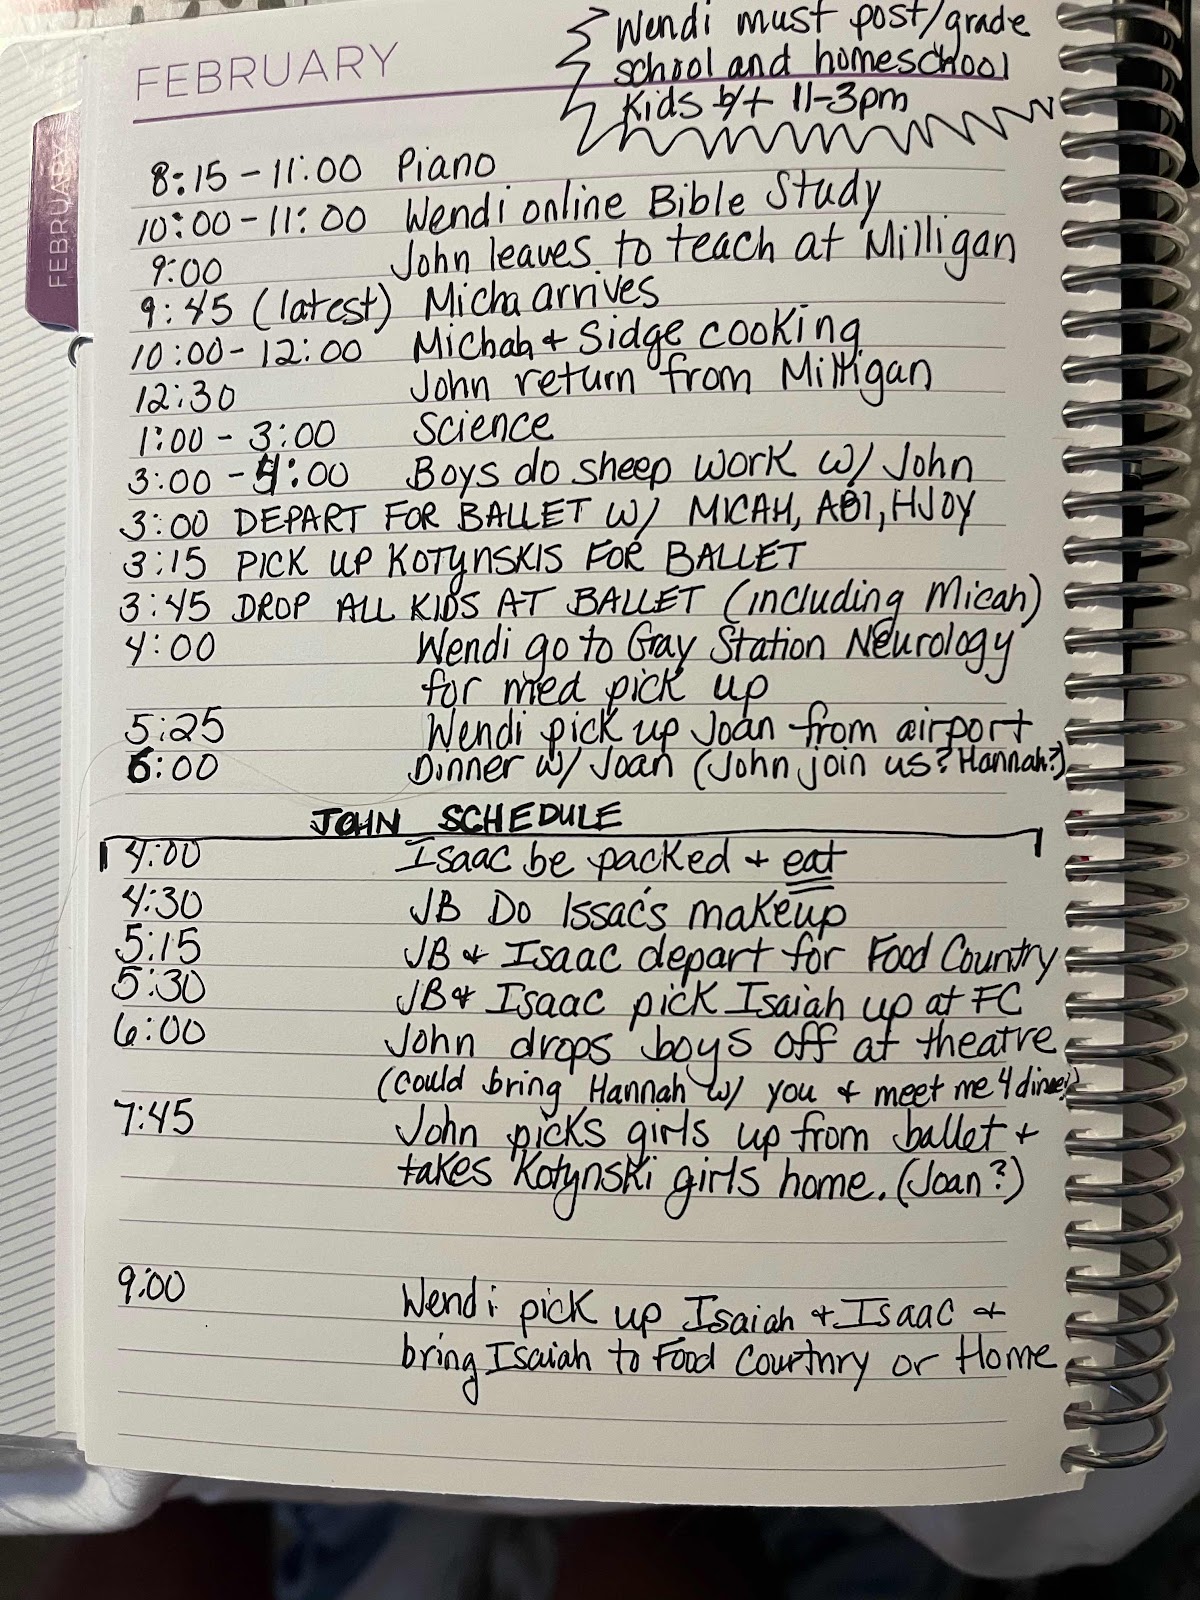 Wendi must post/grade
school and homeschool
Kids b/t 11-3pm
FEBRUARY
FEBRUARY
8:15-11:00 Piano
10:00-11:00 Wendi online Bible Study
9:00 John leaves to teach at Milligan
9:45 (latest) Micha arrives
10:00-12:00 Michah + Sidge cooking
12:30 John return from Milligan
1:00-3:00 Science
3:00-4:00 Boys do sheep work w/ John
3:00 DEPART FOR BALLET W/ MICAH, ABI, HJOY
3:15 PICK UP KOTYNSKIS FOR BALLET
3:45 DROP ALL KIDS AT BALLET (including Micah)
4:00 Wendi go to Gray Station Neurology
for med pick up
5:25 Wendi pick up Joan from airport
6:00 Dinner w/ Joan (John join us? Hannah?)
JOHN SCHEDULE
4:00 Isaac be packed + eat
4:30 JB Do Issac's makeup
5:15 JB + Isaac depart for Food Country
5:30 JB + Isaac pick Isaiah up at FC
6:00 John drops boys off at theatre
(could bring Hannah w/ you + meet me 4 dinner)
7:45 John picks girls up from ballet +
takes Kotynski girls home. (Joan?)
9:00 Wendi pick up Isaiah + Isaac +
bring Isaiah to Food Courtnry or Home